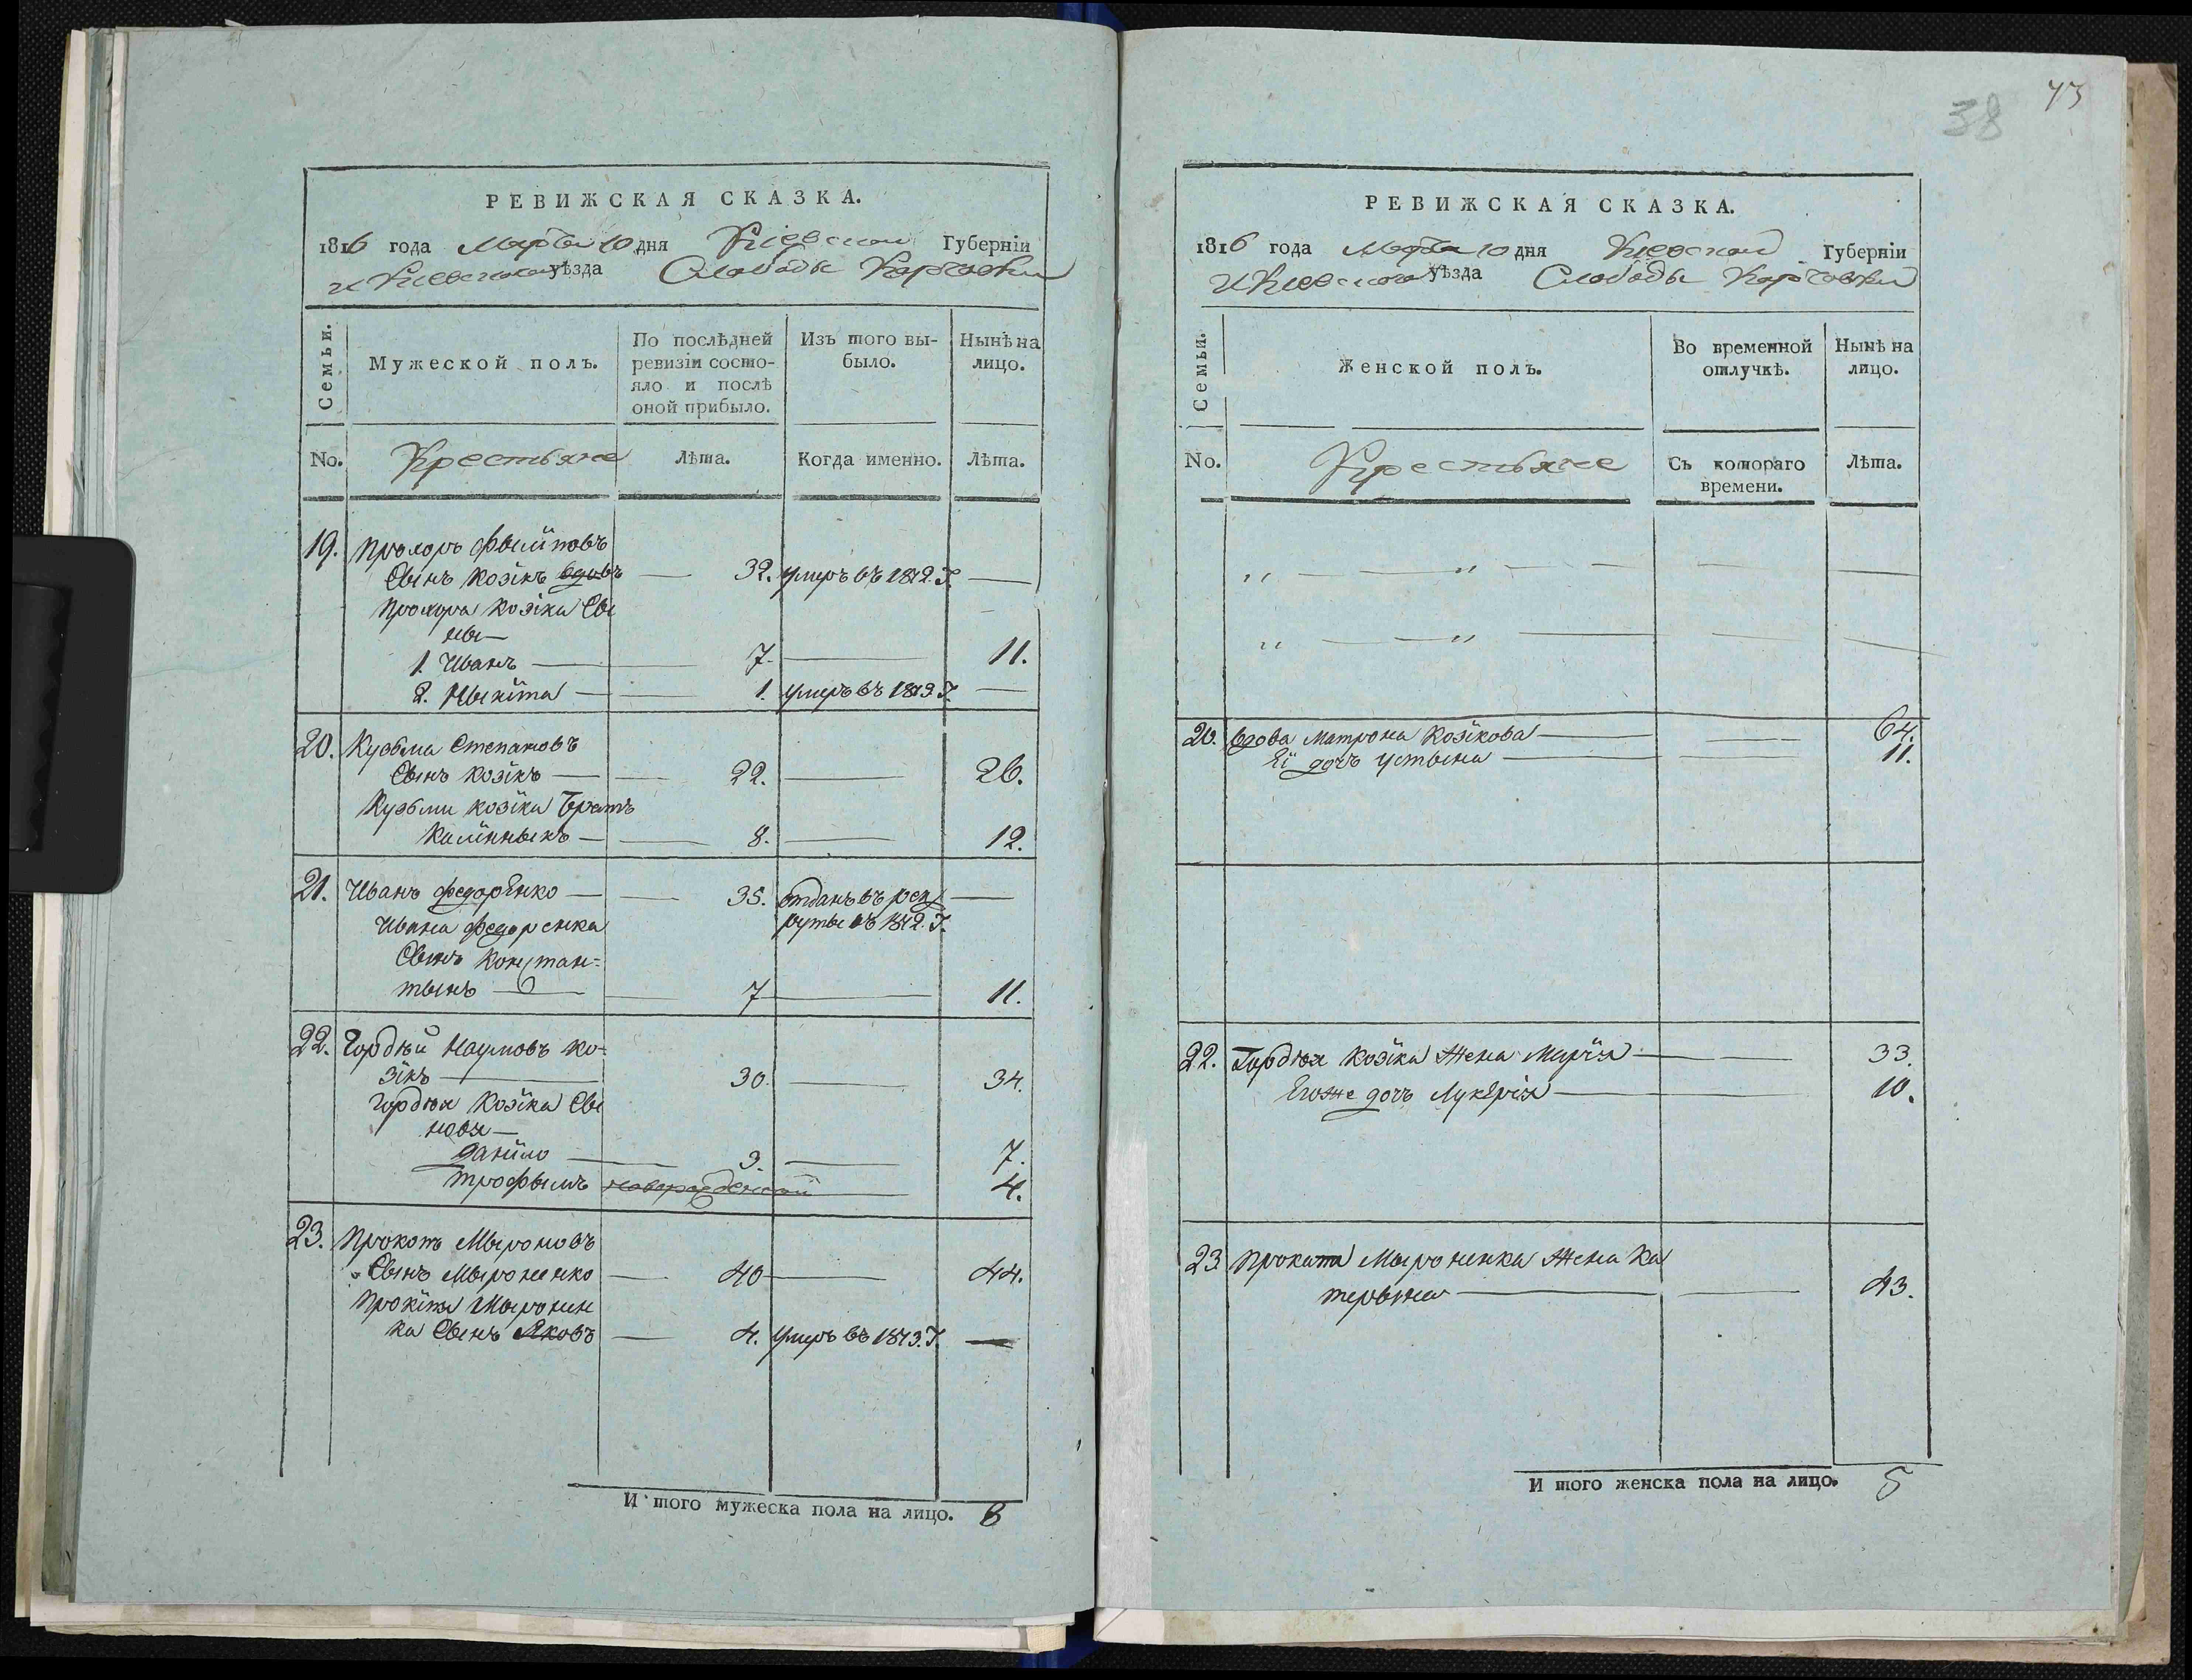 РЕВИЖСКАЯ СКАЗКА.
1816 года Марта 10 дня Кіевской Губерніи
и Кіевского уѣзда Слободы Карповки
Семьи.
Мужеской полъ.
По послѣдней ревизіи состояло и послѣ оной прибыло.
Изъ того выбыло.
Нынѣ на лицо.
No. Крестьяне Лѣта. Когда именно. Лѣта.
19. Прохоръ Фылиповъ
Сынъ Козікъ вдовъ — 32. умеръ въ 1812. Г. —
Прохора Козіка Сы
ны —
1. Иванъ — 7. — 11.
2. Мыкіта — 1. умеръ въ 1812. Г. —
20. Кузьма Степановъ
Сынъ Козікъ — 22. — 26.
Кузьми Козіка Братъ
Калінныкъ — 8. — 12.
21. Иванъ Федоренко — 35. отданъ въ рек
руты въ 1812. Г. —
Ивана Федоренка
Сынъ Констан=
тынъ — 7 — 11.
22. Гордѣй Наумовъ Ко-
зікъ — 30. — 34.
Гордѣя Козіка Сы
новя —
Даніло — 3. — 7.
Трофымъ новорожденный — 4.
23. Прокопъ Мыроновъ
Сынъ Мыроненко — 40 — 44.
Прокіпа Мыронен
ка Сынъ Яковъ — 4. умеръ въ 1813. Г. —
И того мужеска пола на лицо. 8
73
38
РЕВИЖСКАЯ СКАЗКА.
1816 года Марта 10 дня Кіевской Губерніи
и Кіевского уѣзда Слободы Карповки
Семьи.
Женской полъ.
Во временной отлучкѣ.
Нынѣ на лицо.
No. Крестьяне Съ котораго времени. Лѣта.
" — " — —
" — " — —
20. Вдова Матрона Козікова — — 64.
Еї дочь Устына — — 11.
22. Гордѣя Козіка Жена Марія — — 33.
Егоже дочь Лукерія — 10.
23 Прокопа Мыроненка Жена Ка
терына — — 43.
И того женска пола на лицо. 5